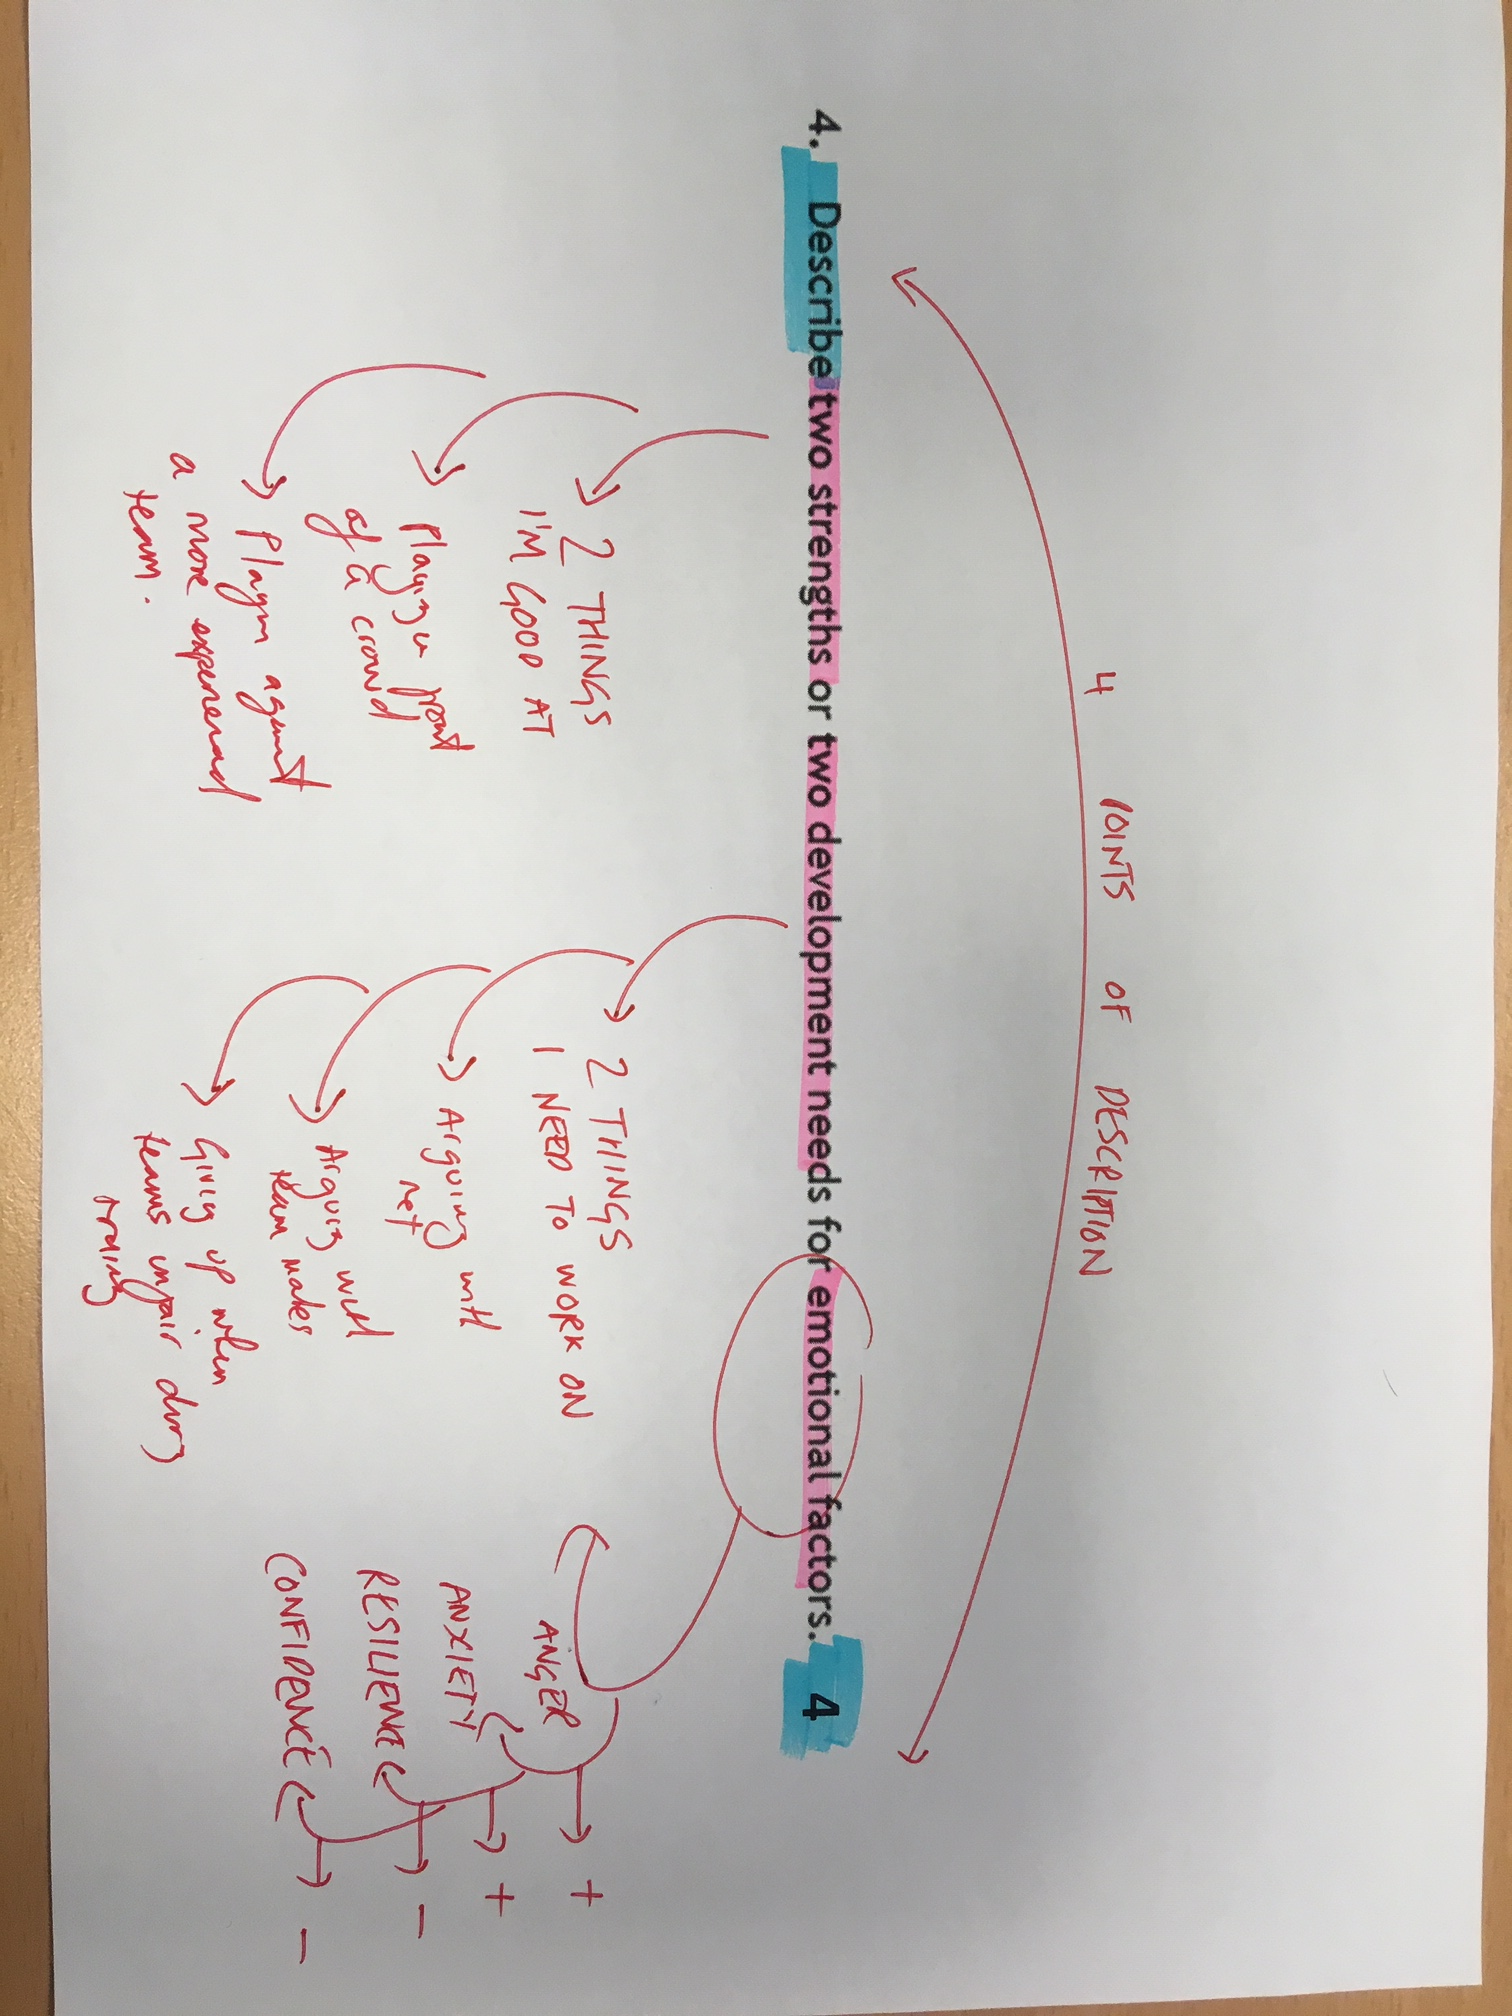 4 POINTS OF DESCRIPTION
4. Describe two strengths or two development needs for emotional factors. 4
2 THINGS
I'M GOOD AT
Playing in front
of a crowd
Playing against
a more experienced
team.
2 THINGS
I NEED TO WORK ON
Arguing with
ref
Arguing with
team mates
Giving up when
teams unfair during
training
ANGER +
ANXIETY +
RESILIENCE -
CONFIDENCE -